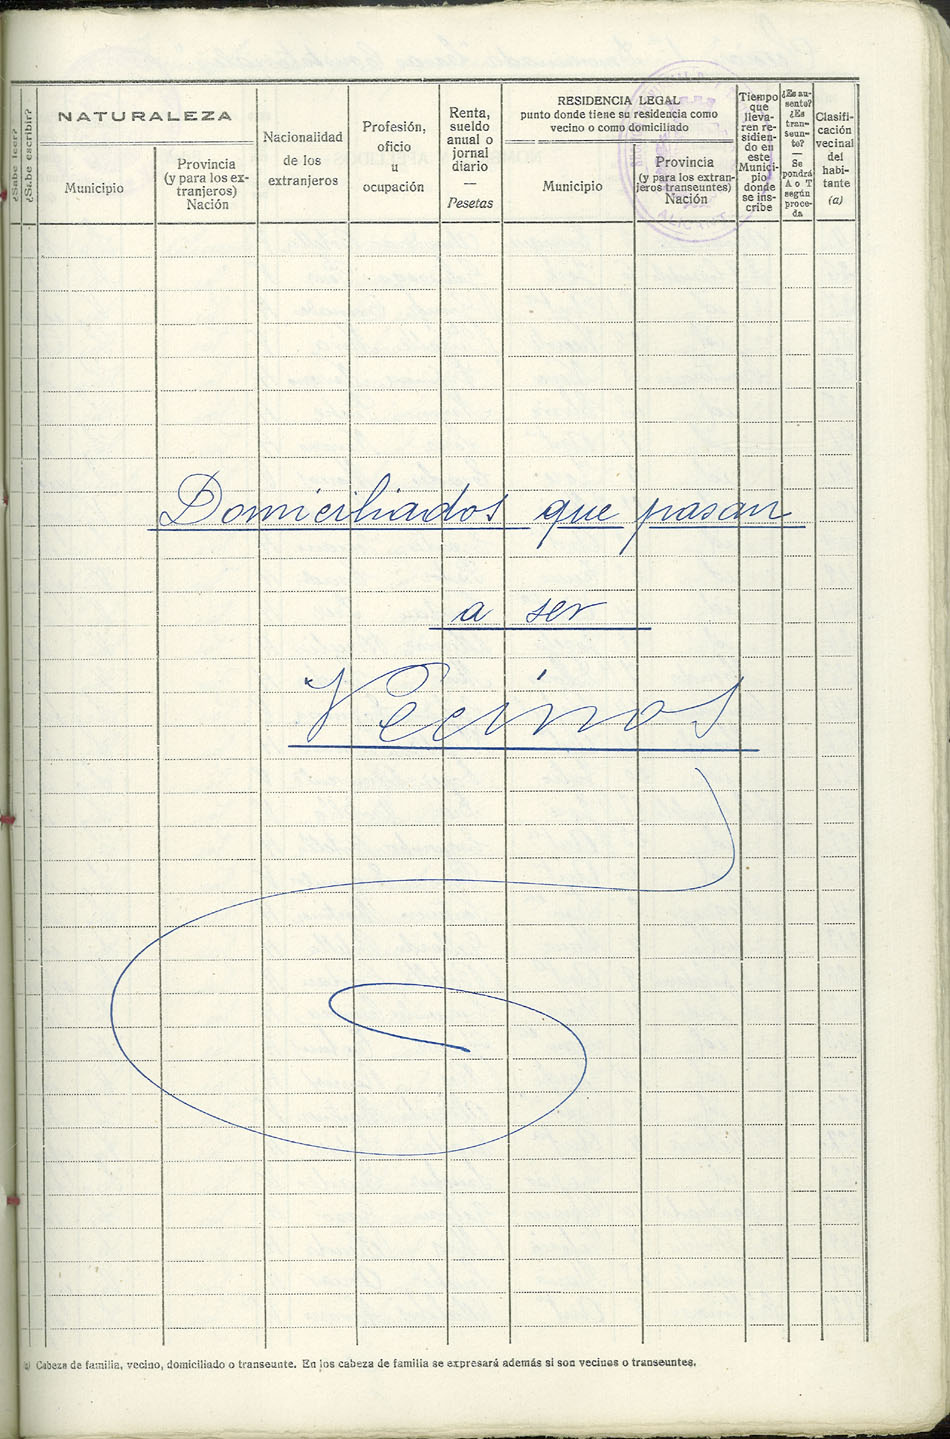 ¿Sabe leer?
¿Sabe escribir?
NATURALEZA
Municipio
Provincia
(y para los ex-
tranjeros)
Nación
Nacionalidad
de los
extranjeros
Profesión,
oficio
u
ocupación
Renta,
sueldo
anual o
jornal
diario
—
Pesetas
RESIDENCIA LEGAL
punto donde tiene su residencia como
vecino o como domiciliado
Municipio
Provincia
(y para los extran-
jeros transeuntes)
Nación
Tiempo
que
lleva-
ren re-
sidien-
do en
este
Munici-
pio
donde
se ins-
cribe
¿Es au-
sente?
¿Es
tran-
seun-
te?
—
Se
pondrá
A o T
según
proce-
da
Clasifi-
cación
vecinal
del
habi-
tante
(a)
ALICANTE
Domiciliados que pasan
a ser
Vecinos
(a) Cabeza de familia, vecino, domiciliado o transeunte. En los cabeza de familia se expresará además si son vecinos o transeuntes.